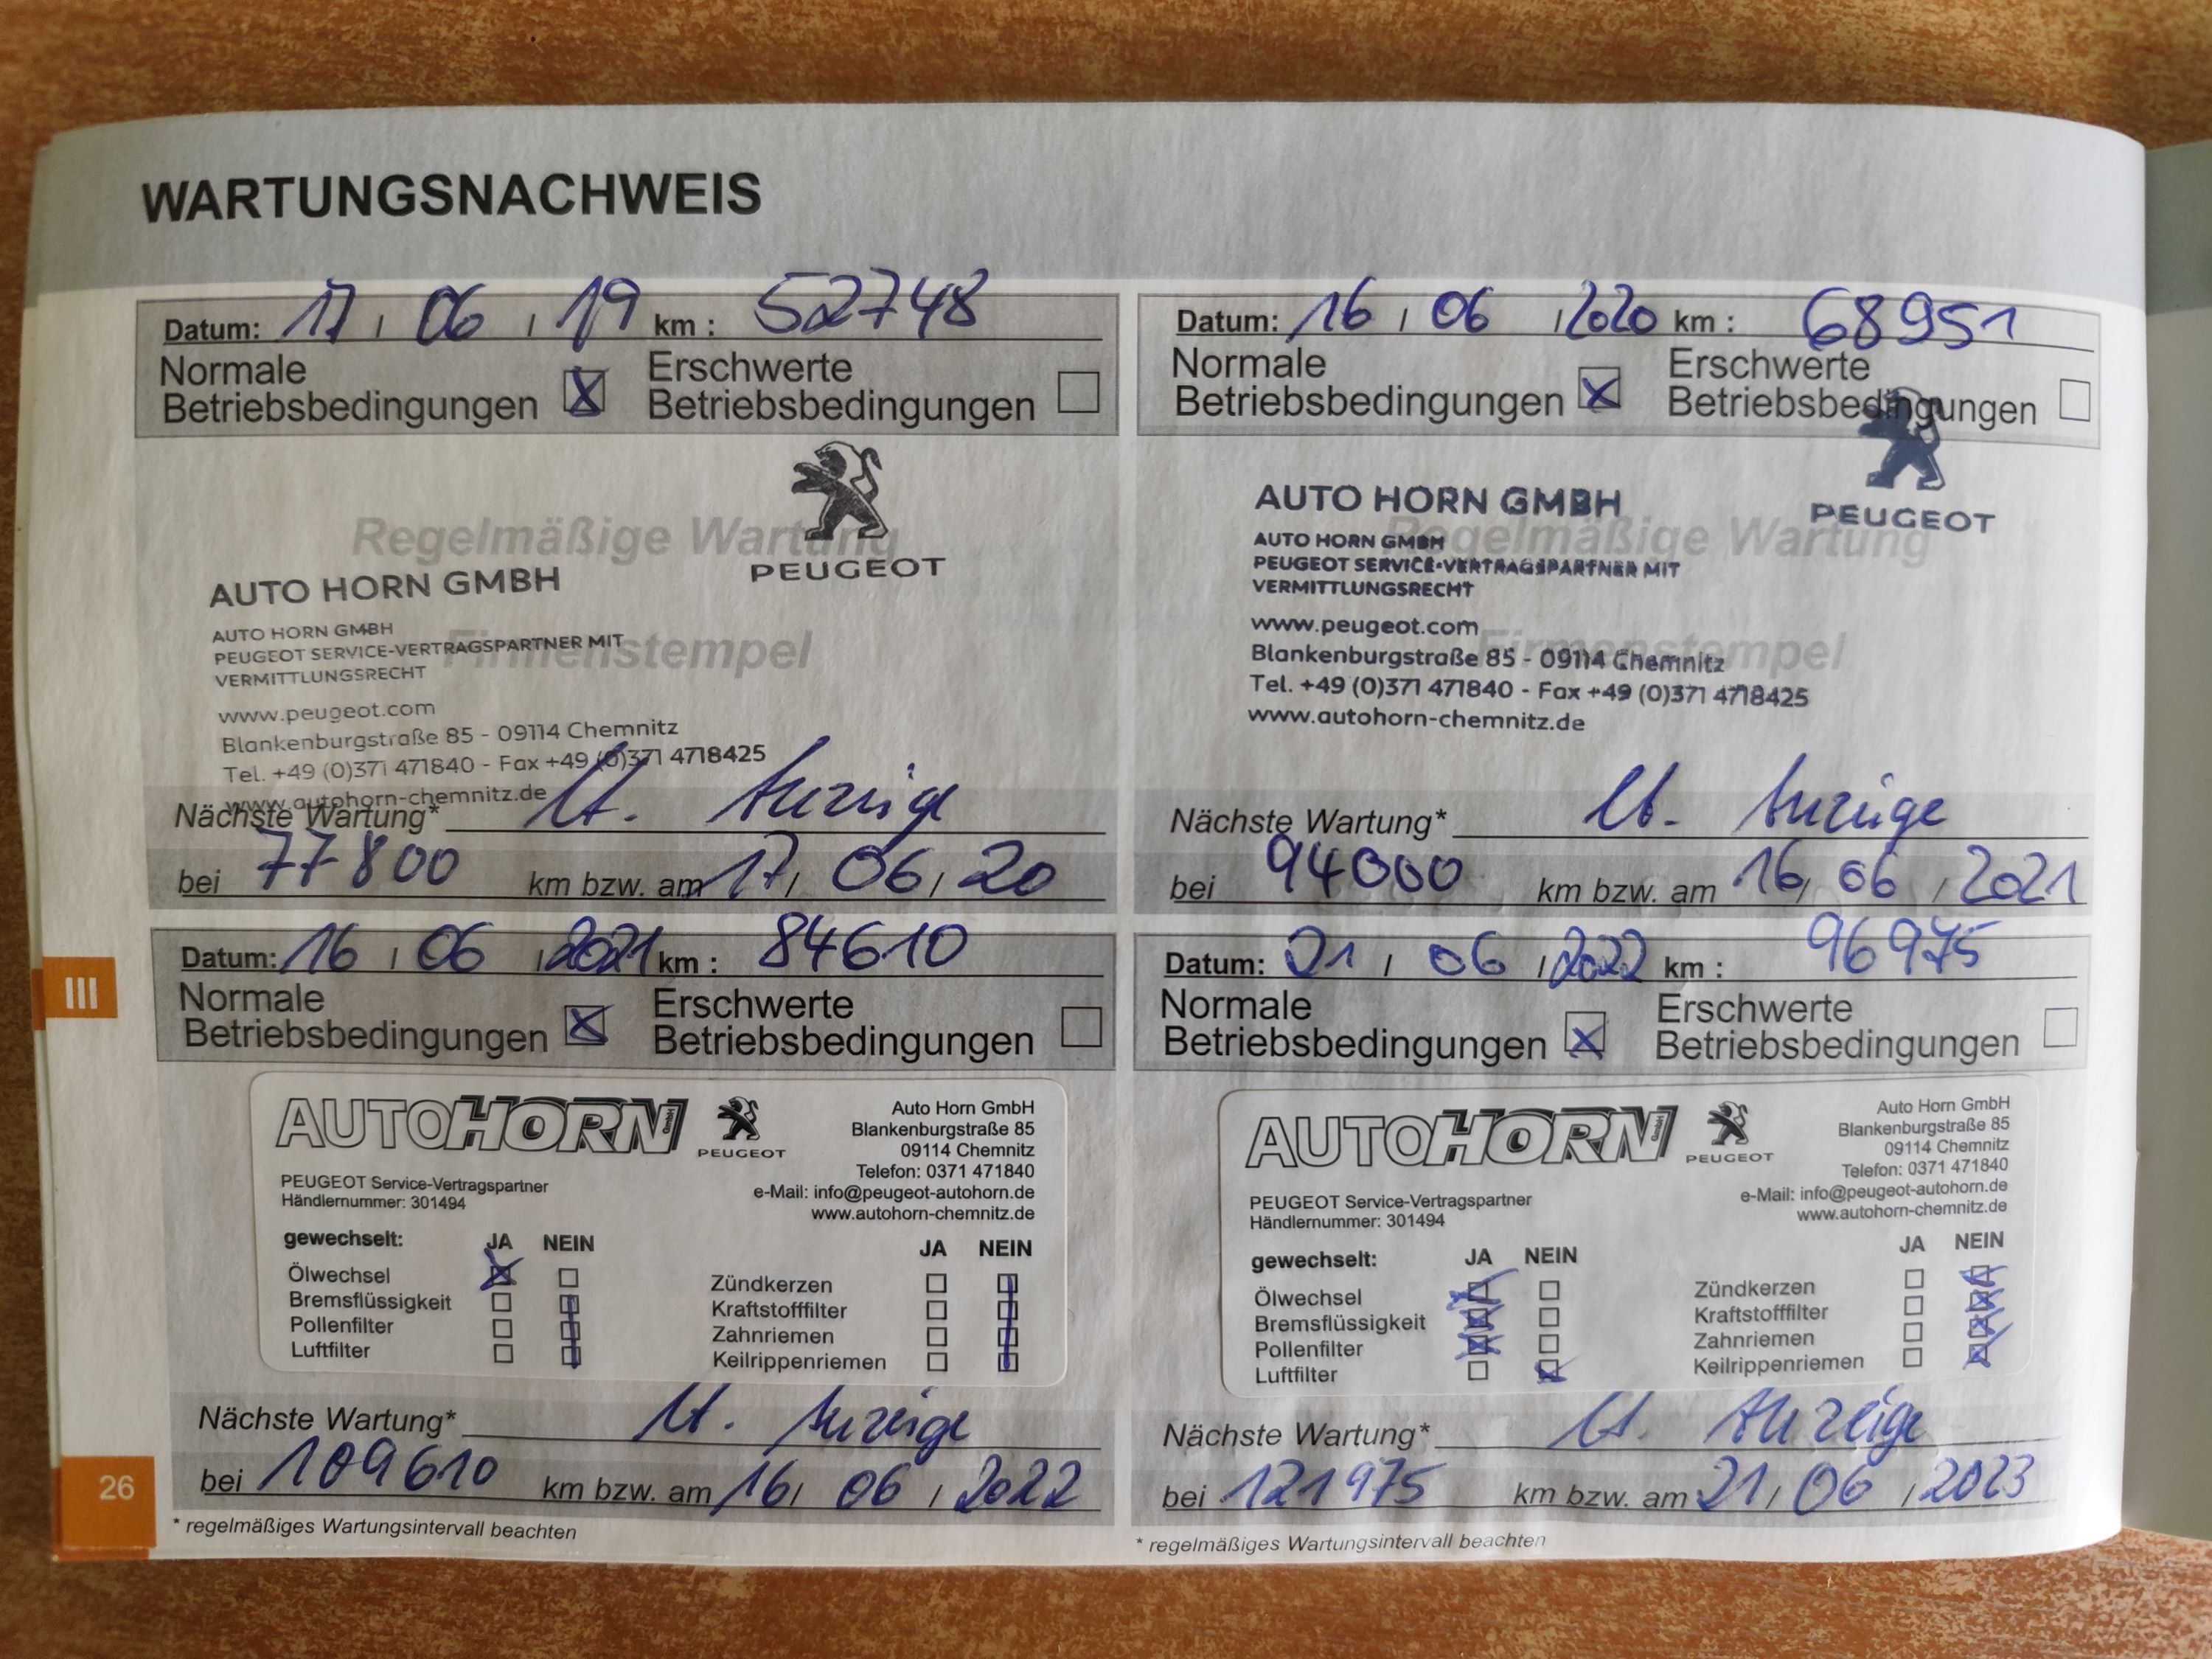 WARTUNGSNACHWEIS
Datum: 17 / 06 / 19 km : 52748
Normale Betriebsbedingungen X Erschwerte Betriebsbedingungen
PEUGEOT
Regelmäßige Wartung
Firmenstempel
AUTO HORN GMBH
AUTO HORN GMBH
PEUGEOT SERVICE-VERTRAGSPARTNER MIT
VERMITTLUNGSRECHT
www.peugeot.com
Blankenburgstraße 85 - 09114 Chemnitz
Tel. +49 (0)371 471840 - Fax +49 (0)371 4718425
www.autohorn-chemnitz.de
Nächste Wartung* lt. Anzeige
bei 77800 km bzw. am 17 / 06 / 20
Datum: 16 / 06 / 2020 km : 68951
Normale Betriebsbedingungen X Erschwerte Betriebsbedingungen
PEUGEOT
Regelmäßige Wartung
Firmenstempel
AUTO HORN GMBH
AUTO HORN GMBH
PEUGEOT SERVICE-VERTRAGSPARTNER MIT
VERMITTLUNGSRECHT
www.peugeot.com
Blankenburgstraße 85 - 09114 Chemnitz
Tel. +49 (0)371 471840 - Fax +49 (0)371 4718425
www.autohorn-chemnitz.de
Nächste Wartung* lt. Anzeige
bei 94000 km bzw. am 16 / 06 / 2021
III
Datum: 16 / 06 / 2021 km : 84610
Normale Betriebsbedingungen X Erschwerte Betriebsbedingungen
AUTOHORN GmbH
PEUGEOT
Auto Horn GmbH
Blankenburgstraße 85
09114 Chemnitz
Telefon: 0371 471840
e-Mail: info@peugeot-autohorn.de
www.autohorn-chemnitz.de
PEUGEOT Service-Vertragspartner
Händlernummer: 301494
gewechselt: JA NEIN JA NEIN
Ölwechsel Zündkerzen
Bremsflüssigkeit Kraftstofffilter
Pollenfilter Zahnriemen
Luftfilter Keilrippenriemen
Nächste Wartung* lt. Anzeige
bei 109610 km bzw. am 16 / 06 / 2022
* regelmäßiges Wartungsintervall beachten
Datum: 21 / 06 / 2022 km : 96975
Normale Betriebsbedingungen X Erschwerte Betriebsbedingungen
AUTOHORN GmbH
PEUGEOT
Auto Horn GmbH
Blankenburgstraße 85
09114 Chemnitz
Telefon: 0371 471840
e-Mail: info@peugeot-autohorn.de
www.autohorn-chemnitz.de
PEUGEOT Service-Vertragspartner
Händlernummer: 301494
gewechselt: JA NEIN JA NEIN
Ölwechsel Zündkerzen
Bremsflüssigkeit Kraftstofffilter
Pollenfilter Zahnriemen
Luftfilter Keilrippenriemen
Nächste Wartung* lt. Anzeige
bei 121975 km bzw. am 21 / 06 / 2023
* regelmäßiges Wartungsintervall beachten
26